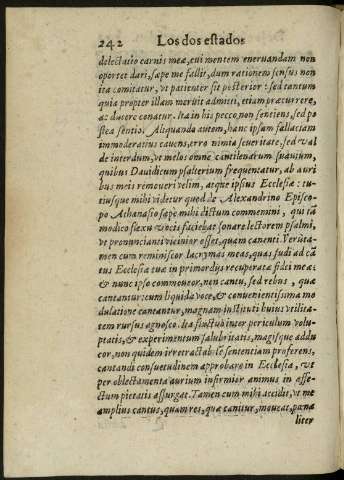 242 Los dos estados
delectatio carnis meæ, cui mentem eneruandam non
oportet dari, sæpe me fallit, dum rationem sensus non
ita comitatur, vt patienter sit posterior: sed tantum
quia propter illam meruit admitti, etiam præcurrere,
ac ducere conatur. Ita in his pecco, non sentiens, sed po
stea sentio. Aliquando autem, hanc ipsam fallaciam
immoderatius cauens, erro nimia seueritate: sed val
de interdum, vt melos omne cantilenarum suauium,
quibus Dauidicum psalterium frequentatur, ab auri
bus meis remoueri velim, atque ipsius Ecclesiæ: tu-
tiusque mihi videtur quod de Alexandrino Episco-
po Athanasio sæpe mihi dictum commemini, qui tā
modico flexu vocis faciebat sonare lectorem psalmi,
vt pronuncianti vicinior esset, quam canenti. Verūta-
men cum reminiscor lacrymas meas, quas fudi ad cā
tus Ecclesiæ tuæ in primordijs recuperatæ fidei meæ:
& nunc ipso commoueor, non cantu, sed rebus, quæ
cantantur: cum liquida voce, & conuenientissima mo
dulatione cantantur, magnam instituti huius vtilita-
tem rursus agnosco. Ita fluctuo inter periculum volu-
ptatis, & experimentum salubritatis, magisque addu
cor, non quidem irretractabilē sententiam proferens,
cantandi consuetudinem approbare in Ecclesia, vt
per oblectamenta aurium infirmior animus in affe-
ctum pietatis assurgat. Tamen cum mihi accidit, vt me
amplius cantus, quam res, quæ canitur, moueat, pœna
liter